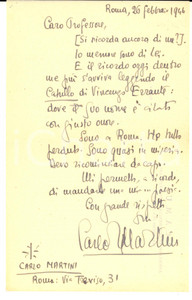 Roma, 26 febbraio 1946
Caro Professore,
[Si ricorda ancora di me?].
Io memore sono di Lei.
E il ricordo oggi dentro
me più s'avviva leggendo il
Catullo di Vincenzo Errante:
dove il Suo nome è citato
con giusto onore.
Sono a Roma. Ho tutto
perduto. Sono quasi in miseria.
Devo ricominciare da capo.
Mi permetta, a ricordo,
di mandarle una mia poesia.
Con grande rispetto
Suo
Carlo Martini
CARLO MARTINI
Roma: Via Treviso, 31